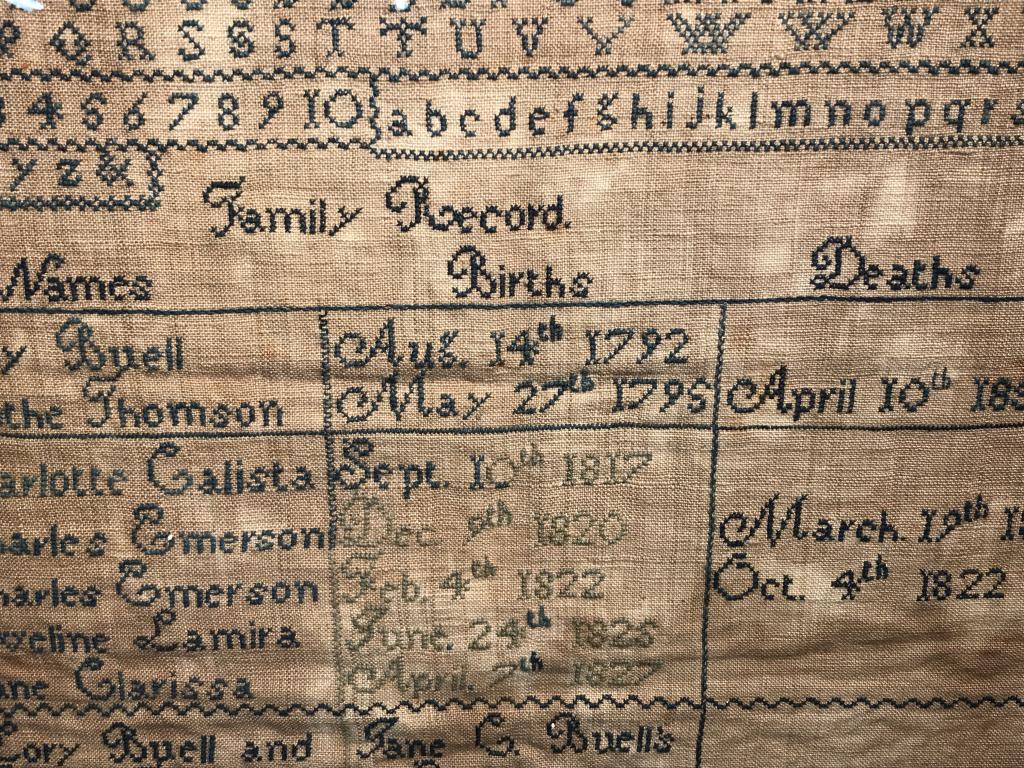 P Q R S S S T T U V V W W W X
4 5 6 7 8 9 10 a b c d e f g h i j k l m n o p q r s
y z &
Family Record.
Names Births Deaths
y Buell Aug. 14th 1792
the Thomson May 27th 1795 April 10th 185
arlotte Calista Sept. 10th 1817
arles Emerson Dec. 9th 1820 March. 19th 18
arles Emerson Feb. 4th 1822 Oct. 4th 1822
eline Lamira June. 24th 1825
ane Clarissa April. 7th 1827
Cory Buell and Jane C. Buell's